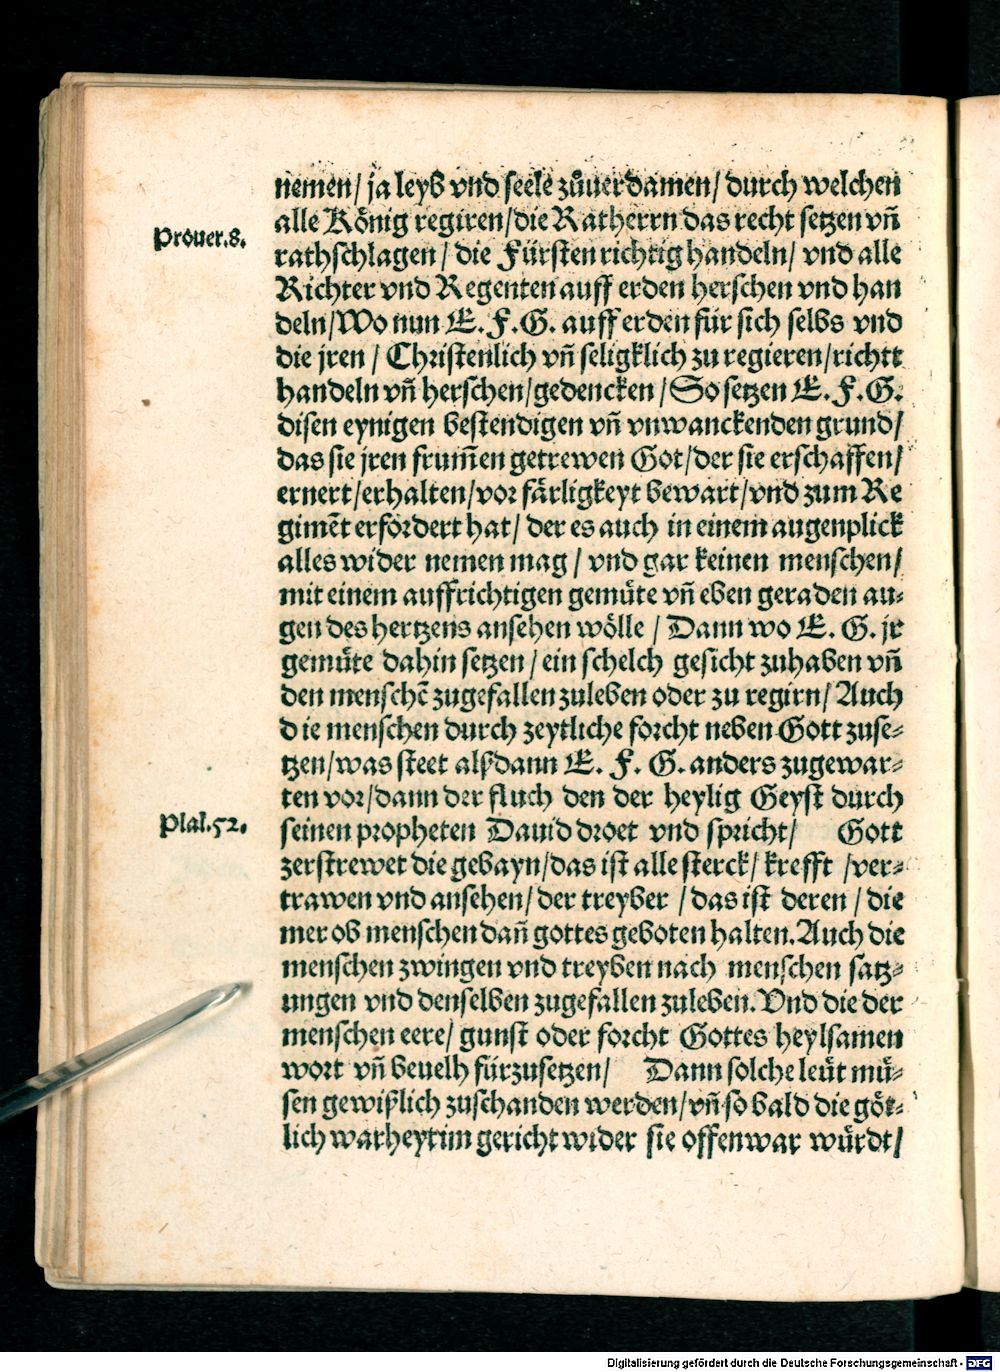 nemen/ ja leyb vnd seele zůuerdamen/ durch welchen
alle König regiren/die Ratherrn das recht setzen vñ
Prouer.8.
rathschlagen/ die Fürsten richtig handeln/ vnd alle
Richter vnd Regenten auff erden herschen vnd han
deln/Wo nun E. F. G. auff erden für sich selbs vnd
die jren/ Christenlich vñ seligklich zu regieren/richtt
handeln vñ herschen/gedencken/So setzen E. F. G.
disen eynigen bestendigen vñ vnwanckenden grund/
das sie jren frum̃en getrewen Got/der sie erschaffen/
ernert/erhalten/vor färligkeyt bewart/vnd zum Re
gimẽt erfordert hat/ der es auch in einem augenplick
alles wider nemen mag/ vnd gar keinen menschen/
mit einem auffrichtigen gemüte vñ eben geraden au⸗
gen des hertzens ansehen wölle/ Dann wo E. G. jr
gemüte dahin setzen/ein schelch gesicht zuhaben vñ
den menschẽ zugefallen zuleben oder zu regirn/ Auch
die menschen durch zeytliche forcht neben Gott zuse⸗
tzen/was steet alßdann E. F. G. anders zugewar⸗
ten vor/dann der fluch den der heylig Geyst durch
Psal.52.
seinen propheten Dauid droet vnd spricht/ Gott
zerstrewet die gebayn/das ist alle sterck/ krefft /ver⸗
trawen vnd ansehen/der treyber /das ist deren/die
mer ob menschen dañ gottes geboten halten. Auch die
menschen zwingen vnd treyben nach menschen satz⸗
ungen vnd denselben zugefallen zuleben. Vnd die der
menschen eere/ gunst oder forcht Gottes heylsamen
wort vñ beuelh fürzusetzen/ Dann solche leüt mü⸗
sen gewißlich zuschanden werden/vñ so bald die göt⸗
lich warheyt im gericht wider sie offenwar würdt/
Digitalisierung gefördert durch die Deutsche Forschungsgemeinschaft - DFG